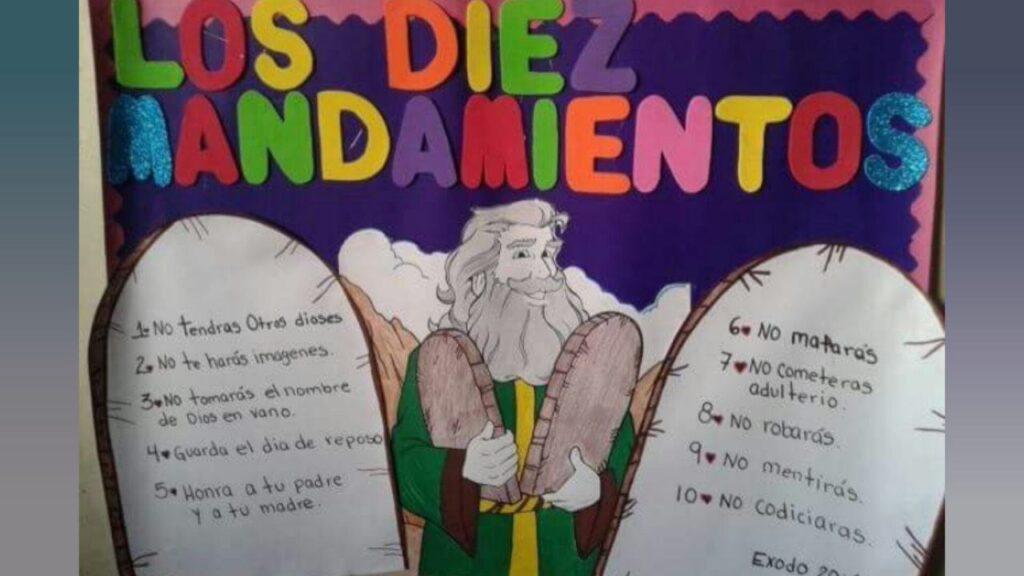 LOS DIEZ
MANDAMIENTOS
1. NO tendras Otros dioses
2. No te harás imagenes.
3♥No tomarás el nombre
de Dios en vano.
4♥Guarda el dia de reposo
5♥ Honra a tu padre
y a tu madre.
6♥ NO matarás
7♥NO cometeras
adulterio.
8♥ NO robarás.
9♥ NO mentirás.
10♥ NO codiciaras.
Exodo